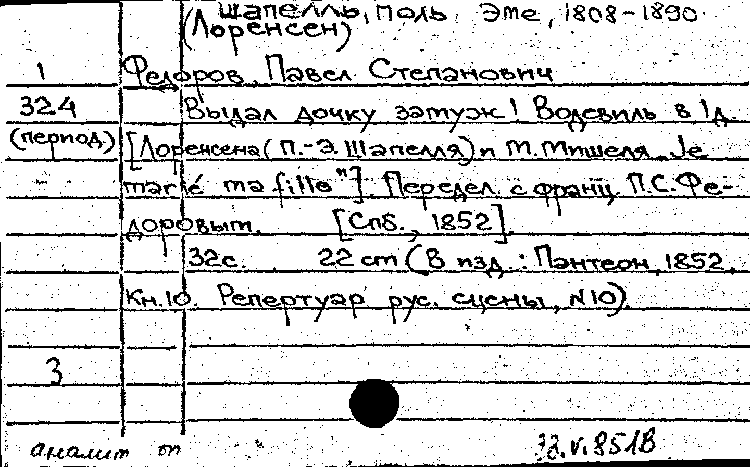 Шапелль, Поль Эме, 1808-1890.
(Лоренсен)
1 Федоров, Павел Степанович
324 Выдал дочку замуж! Водевиль в 1 д.
(период) [Лоренсена (П.-Э. Шапелля) и М. Мишеля „Je
marié ma fille"]. Передел. с франц. П.С. Фе-
доровым. [Спб., 1852].
32с. 22 cm (В изд.: Пантеон, 1852,
Кн. 10. Репертуар рус. сцены, №10)
3
аналит оп